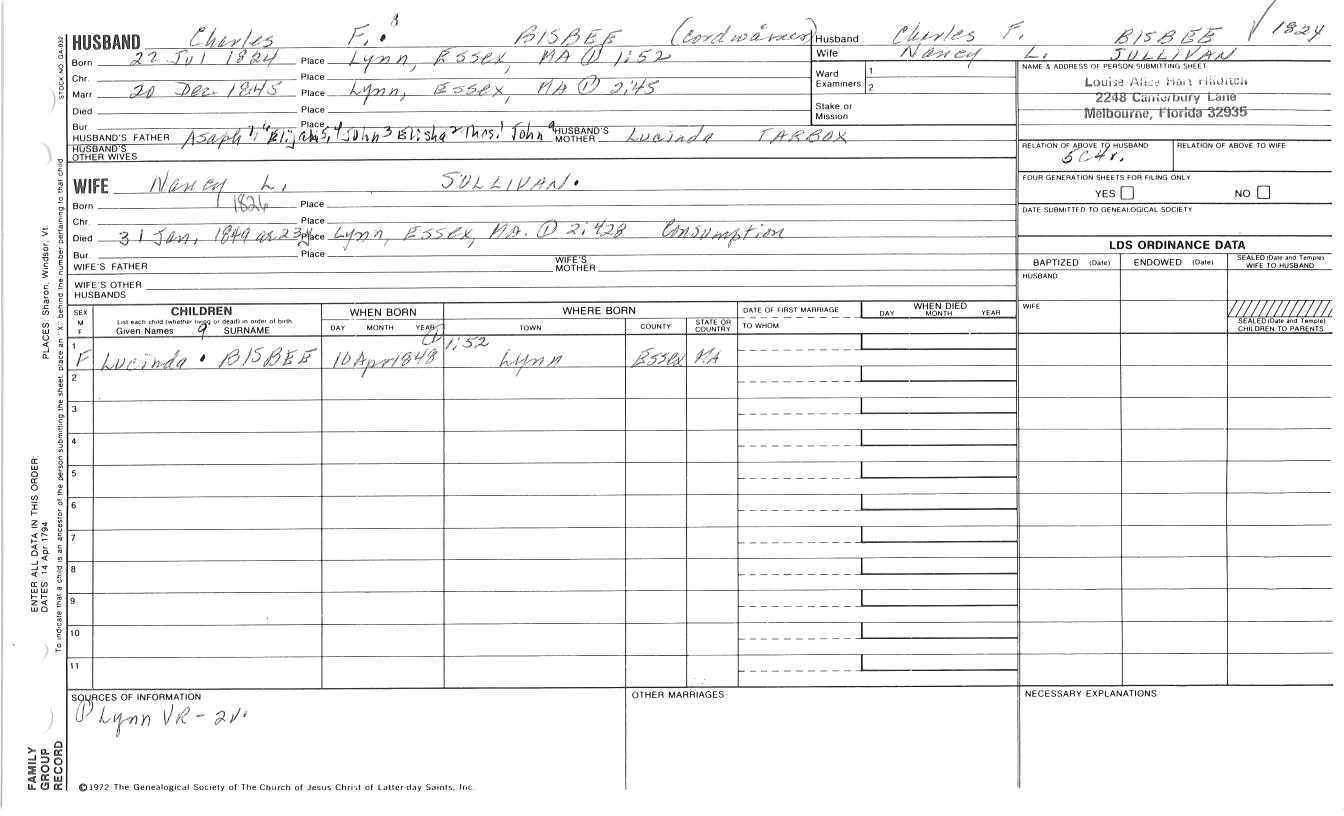 8
HUSBAND Charles F. BISBEE (cordwainer) Husband Charles F. BISBEE √ 1824
Born 22 Jul 1824 Place Lynn, Essex, MA ① 1:52 Wife Nancy L. SULLIVAN
Chr. Place Ward Examiners 1 2
Marr 20 Dec 1845 Place Lynn, Essex, MA ① 2:45
Died Place Stake or Mission
Bur Place
HUSBAND'S FATHER Asaph Elijah John 3 Elisha 2 Thos.1 John HUSBAND'S MOTHER Lucinda TARBOX
HUSBAND'S OTHER WIVES
NAME & ADDRESS OF PERSON SUBMITTING SHEET
Louise Alice Hart Hilditch
2248 Canterbury Lane
Melbourne, Florida 32935
RELATION OF ABOVE TO HUSBAND RELATION OF ABOVE TO WIFE
5C4r.
FOUR GENERATION SHEETS FOR FILING ONLY
YES NO
DATE SUBMITTED TO GENEALOGICAL SOCIETY
WIFE Nancy L. SULLIVAN.
Born 1826 Place
Chr. Place
Died 31 Jan, 1849 ae 23 Place Lynn, Essex, MA. ① 2:428 Consumption
Bur. Place
WIFE'S FATHER WIFE'S MOTHER
WIFE'S OTHER HUSBANDS
LDS ORDINANCE DATA
BAPTIZED (Date) ENDOWED (Date) SEALED (Date and Temple) WIFE TO HUSBAND
HUSBAND
WIFE
SEALED (Date and Temple) CHILDREN TO PARENTS
SEX M F CHILDREN WHEN BORN WHERE BORN DATE OF FIRST MARRIAGE WHEN DIED
List each child (whether living or dead) in order of birth
Given Names 9 SURNAME DAY MONTH YEAR TOWN COUNTY STATE OR COUNTRY TO WHOM DAY MONTH YEAR
① 1:52
1 F Lucinda • BISBEE 10 Apr 1848 Lynn Essex MA
2
3
4
5
6
7
8
9
10
11
SOURCES OF INFORMATION OTHER MARRIAGES NECESSARY EXPLANATIONS
① Lynn VR - 2v.
©1972 The Genealogical Society of The Church of Jesus Christ of Latter-day Saints, Inc.
STOCK NO. GA-032
To indicate that a child is an ancestor of the person submitting the sheet, place an "X" behind the number pertaining to that child
ENTER ALL DATA IN THIS ORDER:
DATES 14 Apr 1794
PLACES Sharon, Windsor, Vt.
FAMILY GROUP RECORD